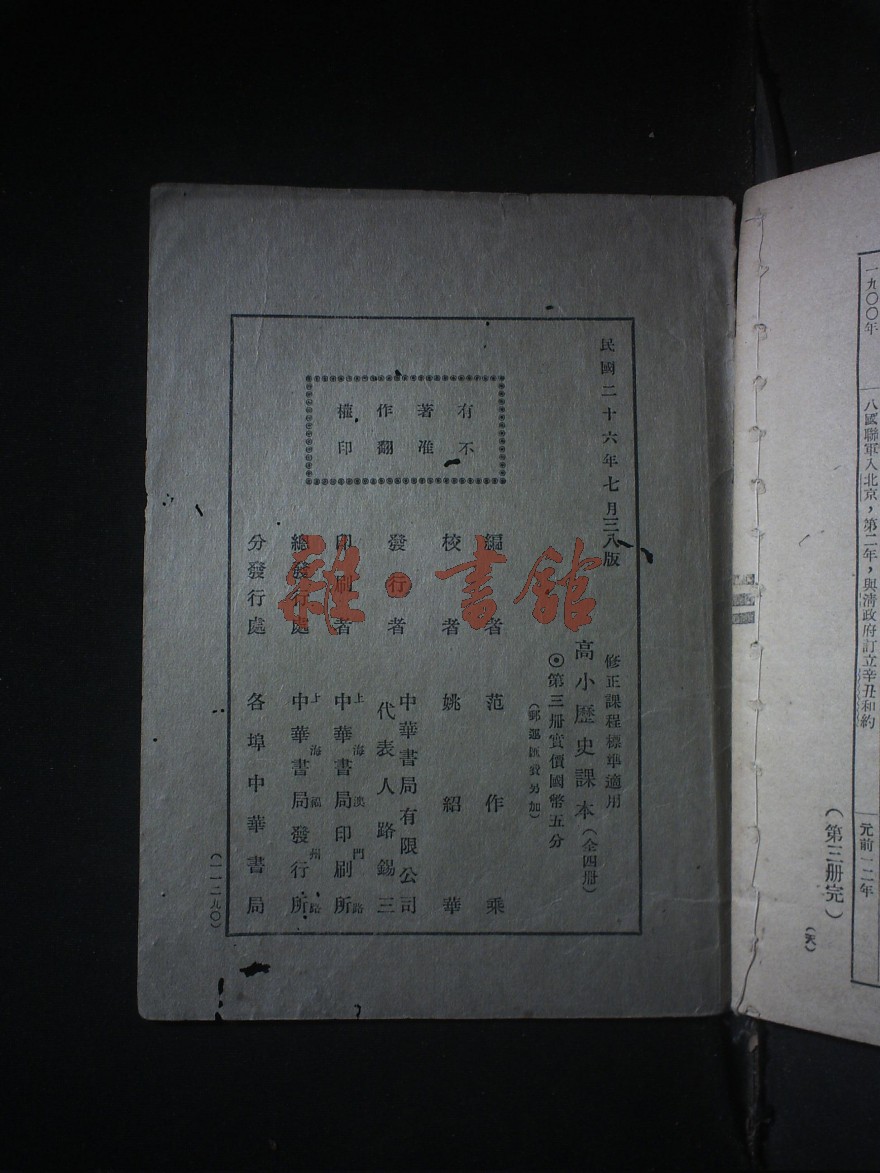 一九〇〇年
八國聯軍入北京，第二年，與清政府訂立辛丑和約
元前一二年
（第三册完）
（天）
民國二十六年七月三八版
修正課程標準適用
高小歷史課本（全四册）
◉第三册實價國幣五分
（郵運匯費另加）
有著作權
不准翻印
編者 范作乘
校者 姚紹華
發行者 中華書局有限公司
代表人 路錫三
印刷者 上海澳門路
中華書局印刷所
總發行處 上海福州路
中華書局發行所
分發行處 各埠中華書局
（一一二九〇）
雜·書館